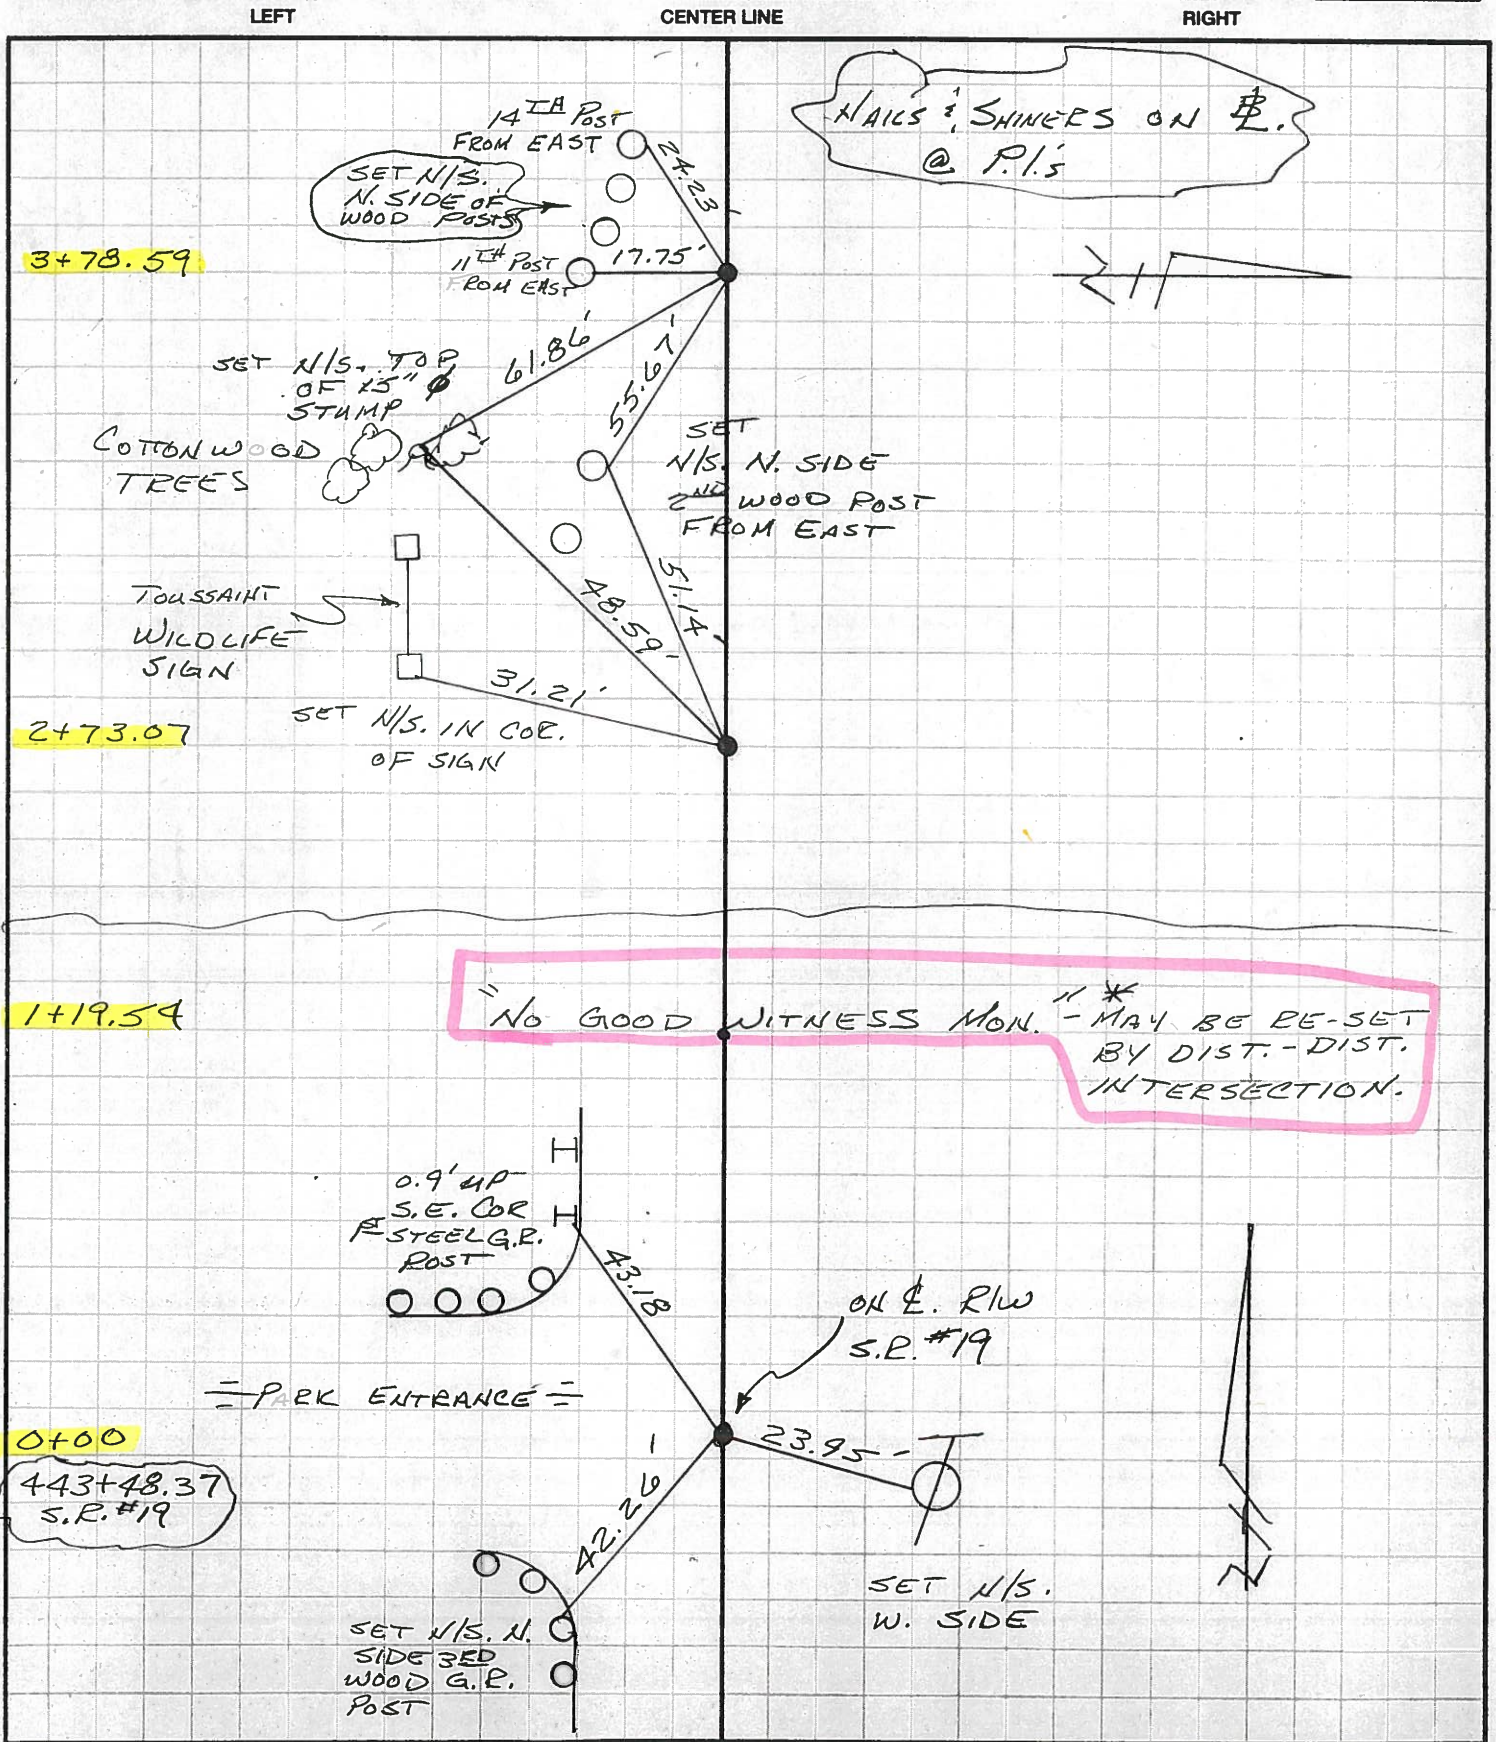 LEFT CENTER LINE RIGHT
NAILS & SHINERS ON BL.
@ P.I.'s
14TH POST
FROM EAST
24.23'
SET N/S.
N. SIDE OF
WOOD POSTS
3+78.59
11TH POST
FROM EAST
17.75'
SET N/S. TOP
OF 15" Ø
STUMP
61.86'
55.67'
COTTONWOOD
TREES
SET
N/S. N. SIDE
2ND WOOD POST
FROM EAST
TOUSSAINT
WILDLIFE
SIGN
48.59'
51.14'
31.21'
2+73.07
SET N/S. IN COR.
OF SIGN
1+19.54
"NO GOOD WITNESS MON." * - MAY BE RE-SET
BY DIST.-DIST.
INTERSECTION.
0.9' UP
S.E. COR
1ST STEEL G.R.
POST
43.18
ON ℄. R/W
S.R. #19
=PARK ENTRANCE=
0+00
443+48.37
S.R. #19
23.95'
42.26'
SET N/S.
W. SIDE
SET N/S. N.
SIDE 3RD
WOOD G.R.
POST
N
N